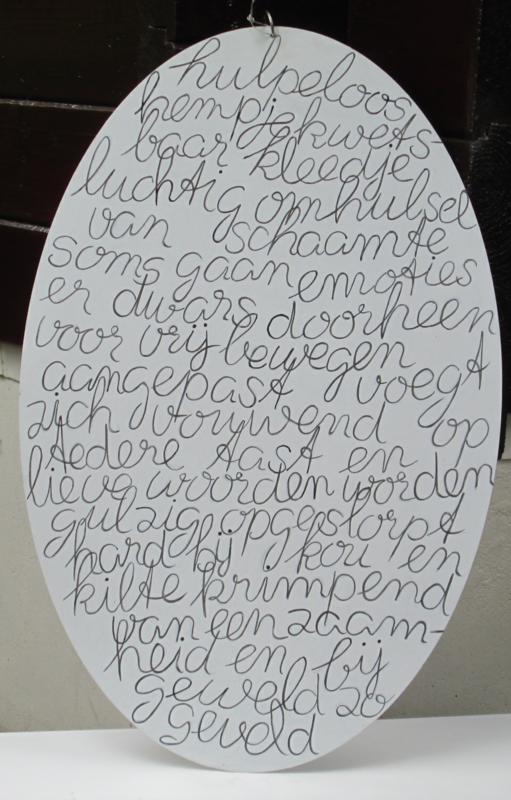 hulpeloos
hempje kwets-
baar kleedje
luchtig omhulsel
van schaamte
soms gaan emoties
er dwars doorheen
voor vrij bewegen
aangepast voegt
zich vouwend op
tedere tast en
lieve woorden worden
gulzig opgeslorpt
hard bij kou en
kilte krimpend
van eenzaam-
heid en bij
geweld zo
geveld